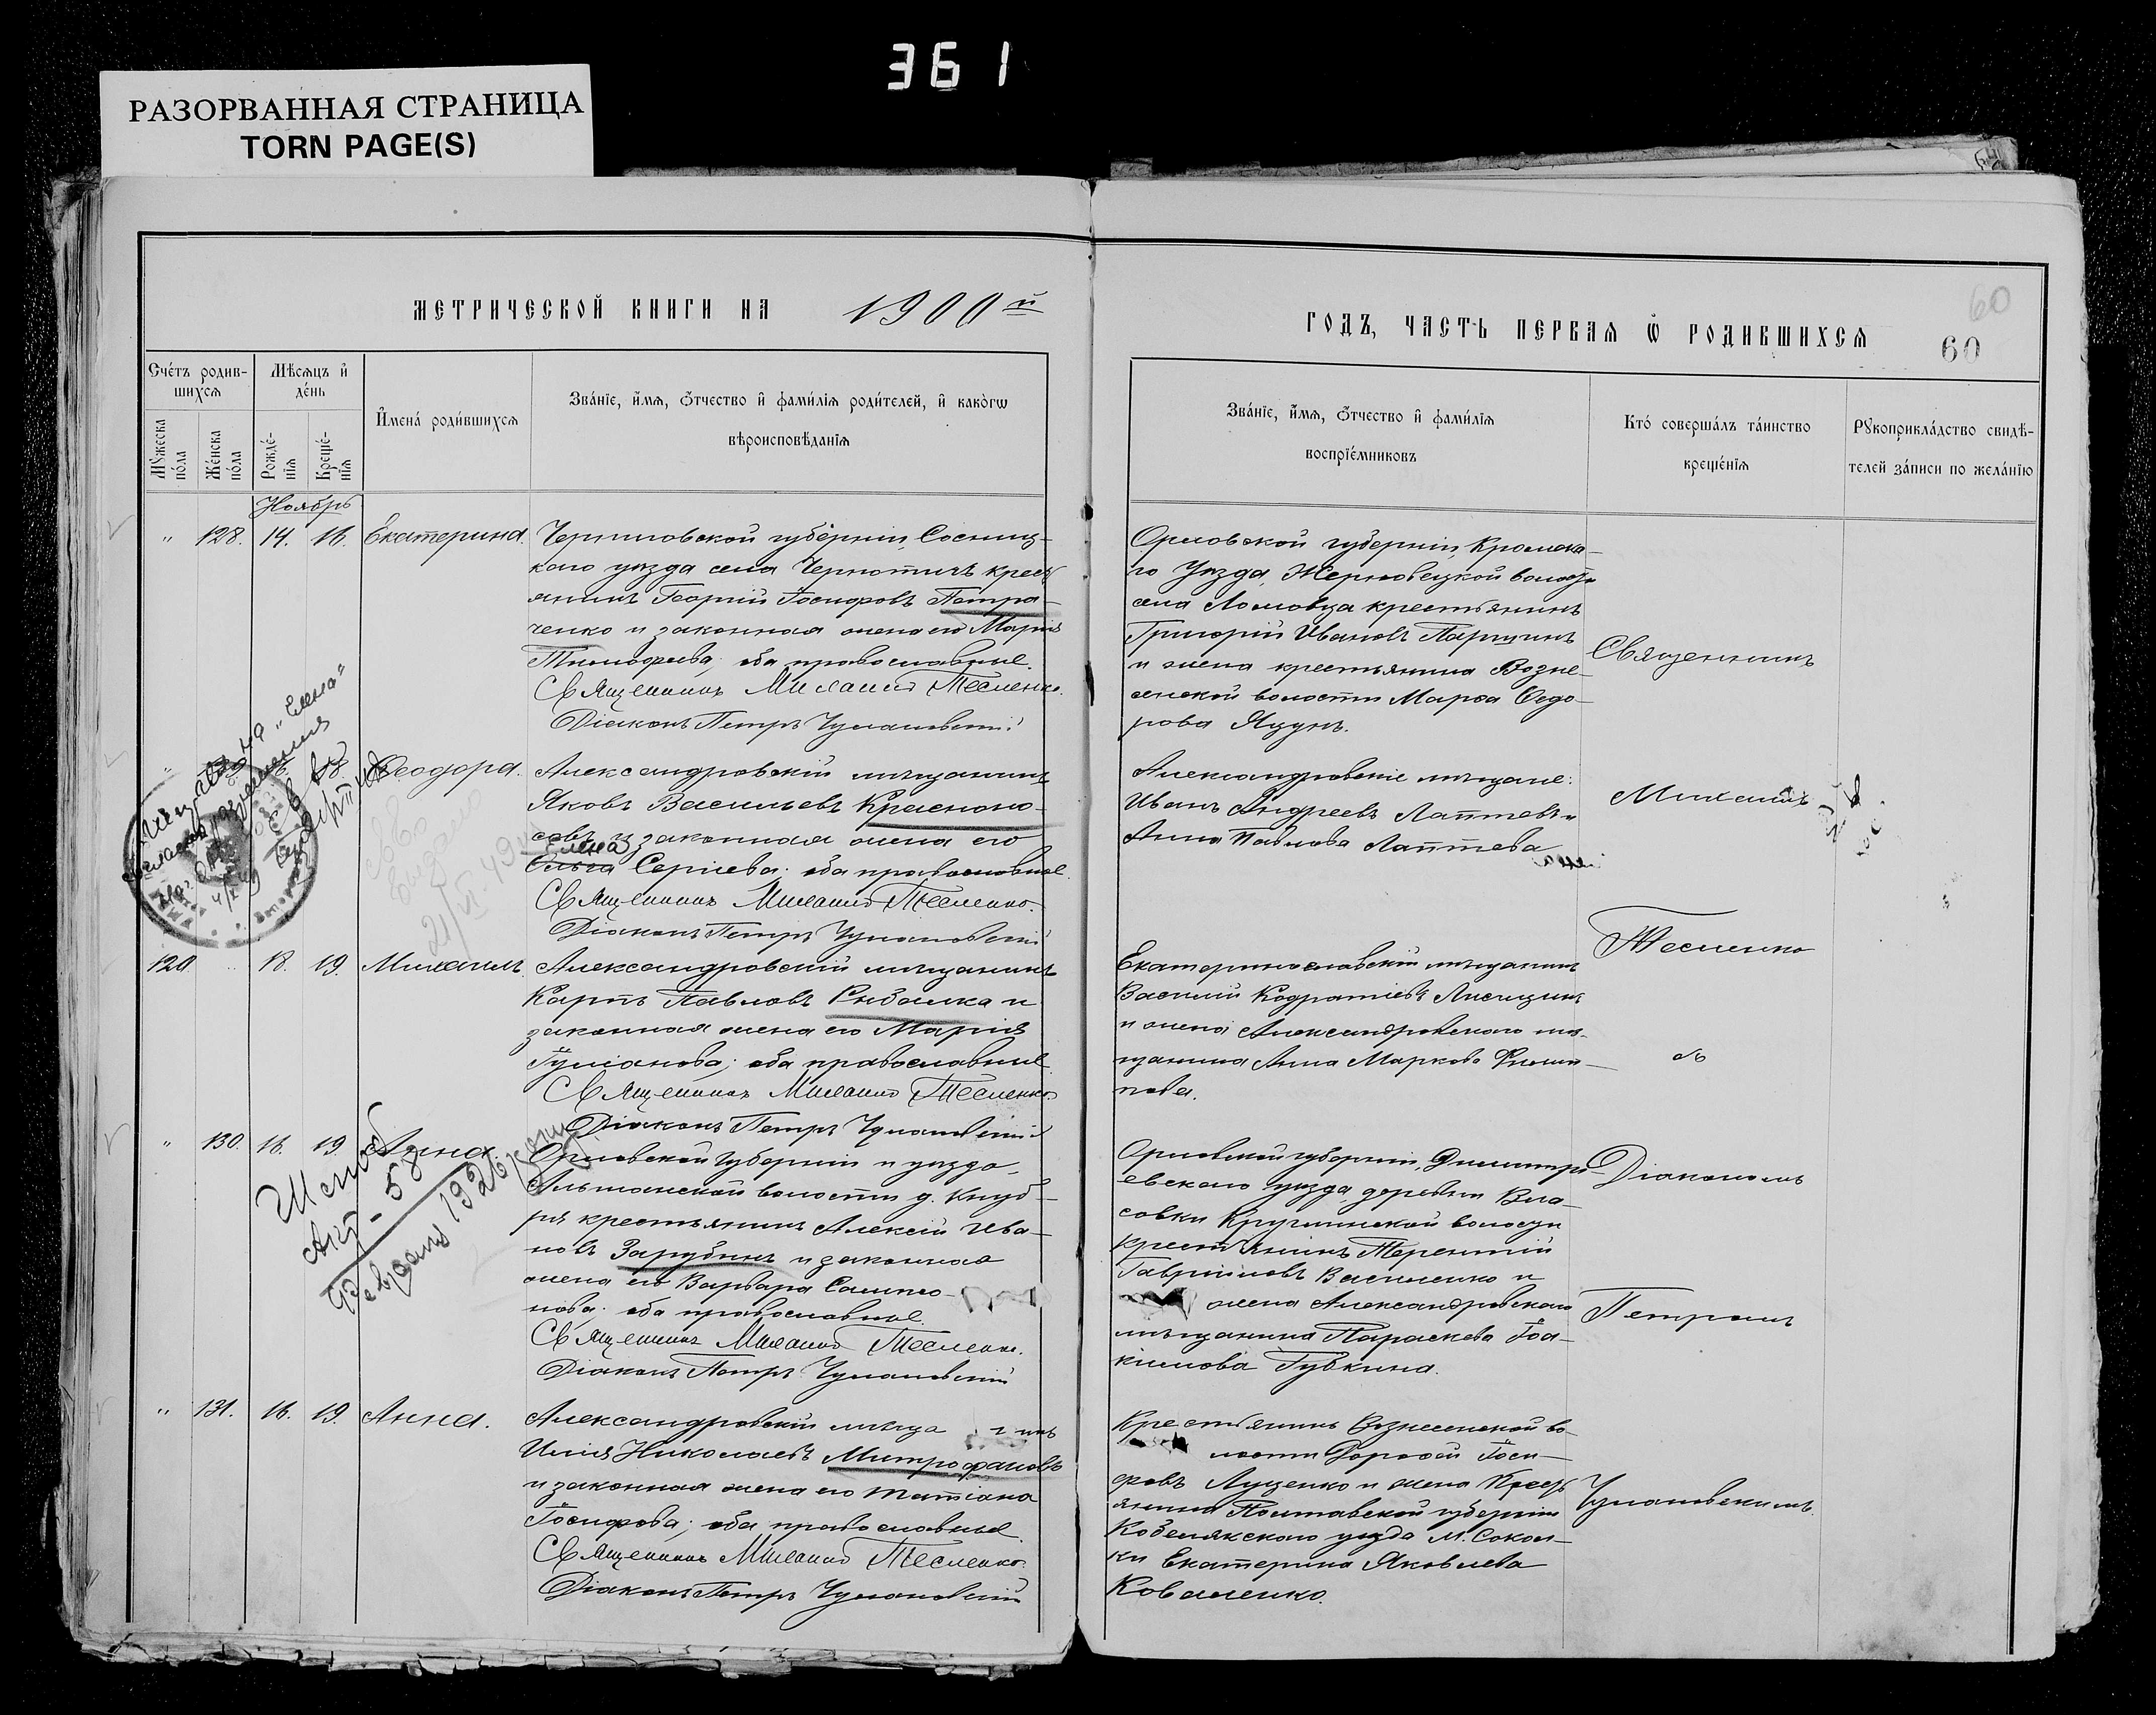 361
РАЗОРВАННАЯ СТРАНИЦА
TORN PAGE(S)
МЕТРИЧЕСКОЙ КНИГИ НА 1900й
ГОДЪ, ЧАСТЬ ПЕРВАЯ Ѡ РОДИВШИХСЯ
60
60
Сче́тъ родив-
шихся
Мѣсяцъ и҆
де́нь
Мꙋ́жеска
по́ла
Же́нска
по́ла
Рожде́-
нїѧ
Креще́-
нїѧ
И҆мена́ роди́вшихсѧ
Зва́нїе, и҆́мѧ, ѻ҆́тчество и҆ фами́лїѧ роди́телей, и҆ како́гѡ
вѣроисповѣ́данїѧ
Зва́нїе, и҆́мѧ, ѻ҆́тчество и҆ фами́лїѧ
воспрїе́мниковъ
Кто́ соверша́лъ та́инство
креще́нїѧ
Рꙋкоприкла́дство свидѣ́-
телей за́писи по жела́нїю
Ноябрь
" 128. 14. 16. Екатерина.
Черниговской губерніи, Сосниц-
каго уѣзда села Чернотичъ крест
янинъ Георгій Іосифовъ Петра-
ченко и законная жена его Марія
Тимофеева; оба православные.
Священникъ Михаилъ Тесленко.
Діаконъ Петръ Чумановскій
Орловской губерніи, Кромска-
го Уѣзда, Жерновецкой волости
села Ломовца крестьянинъ
Григорій Ивановъ Паршинъ
и жена крестьянина Возне-
сенской волости Марѳа Ѳедо-
рова Яцунъ.
Священникъ
Ѳеодора.
Александровскій мѣщанинъ
Яковъ Васильевъ Красноно-
совъ и законная жена его
Елена
Ольга Сергіева; оба православные.
Священникъ Михаилъ Тесленко.
Діаконъ Петръ Чумановскій
Александровскіе мѣщане:
Иванъ Андреевъ Лаптевъ и
Анна Павлова Лаптева
Михаилъ
Тесленко
"Елена"
21/VI-49
129 " 18. 19. Михаилъ.
Александровскій мѣщанинъ
Карпъ Павловъ Рыбалка и
законная жена его Марія
Гуліанова; оба православные
Священникъ Михаилъ Тесленко.
Діаконъ Петръ Чумановскій
Екатеринославскій мѣщанинъ
Василій Кодратіевъ Лисицинъ
и жена Александровскаго мѣ-
щанина Анна Маркова Филип-
пова.
съ
" 130. 16. 19. Анна.
Орловской губерніи и уѣзда,
крестьянинъ Алексѣй Ива-
новъ Зарубинъ и законная
жена его Варвара
нова; оба православные.
Священникъ Михаилъ Тесленко.
Діаконъ Петръ Чумановскій
Орловской губерніи, Димитрі-
евскаго уѣзда, деревни Вла-
совки волости
крестьянинъ Терентій
Гавріиловъ Василенко и
жена Александровскаго
мѣщанина Параскева Іоа-
кимова Губкина.
Діакономъ
Петромъ
Акт - 58
1926
" 131. 16. 19. Анна.
Александровскій мѣща нинъ
Илія Николаевъ Митрофановъ
и законная жена его Татіана
Іосифова; оба православные
Священникъ Михаилъ Тесленко.
Діаконъ Петръ Чумановскій
Крестьянинъ Вознесенской во-
лости Дороѳей Іоси-
фовъ Луценко и жена Крест
янина Полтавской губерніи
Кобелякскаго уѣзда м. Сокол-
ки Екатерина Яковлева
Коваленко.
Чумановскимъ.